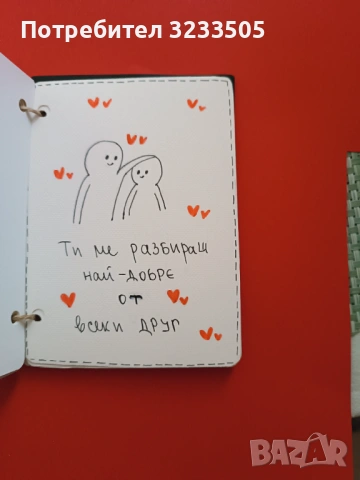 Потребител 3233505
Ти ме разбираш
най-добре
от
всеки друг
BAZAR